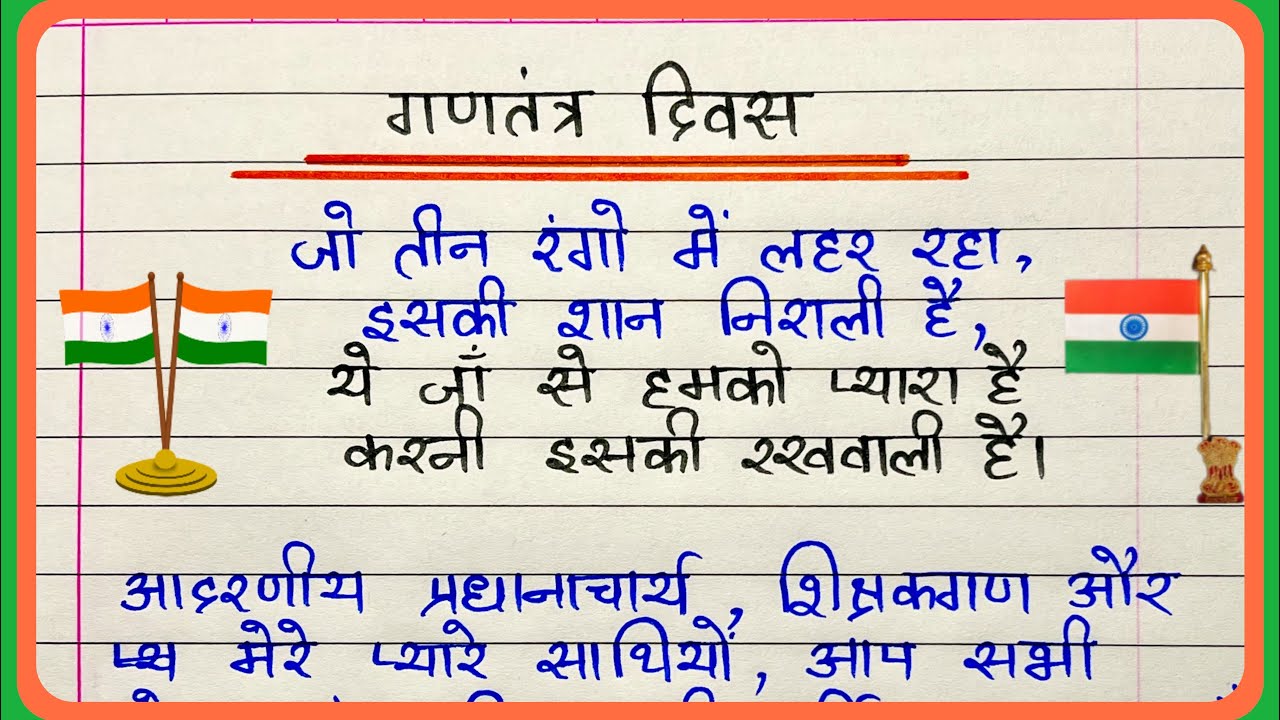 गणतंत्र दिवस
जो तीन रंगो में लहर रहा,
इसकी शान निराली है,
ये जाँ से हमको प्यारा है
करनी इसकी रखवाली है।
आदरणीय प्रधानाचार्य, शिक्षकगण और
मेरे प्यारे साथियों, आप सभी